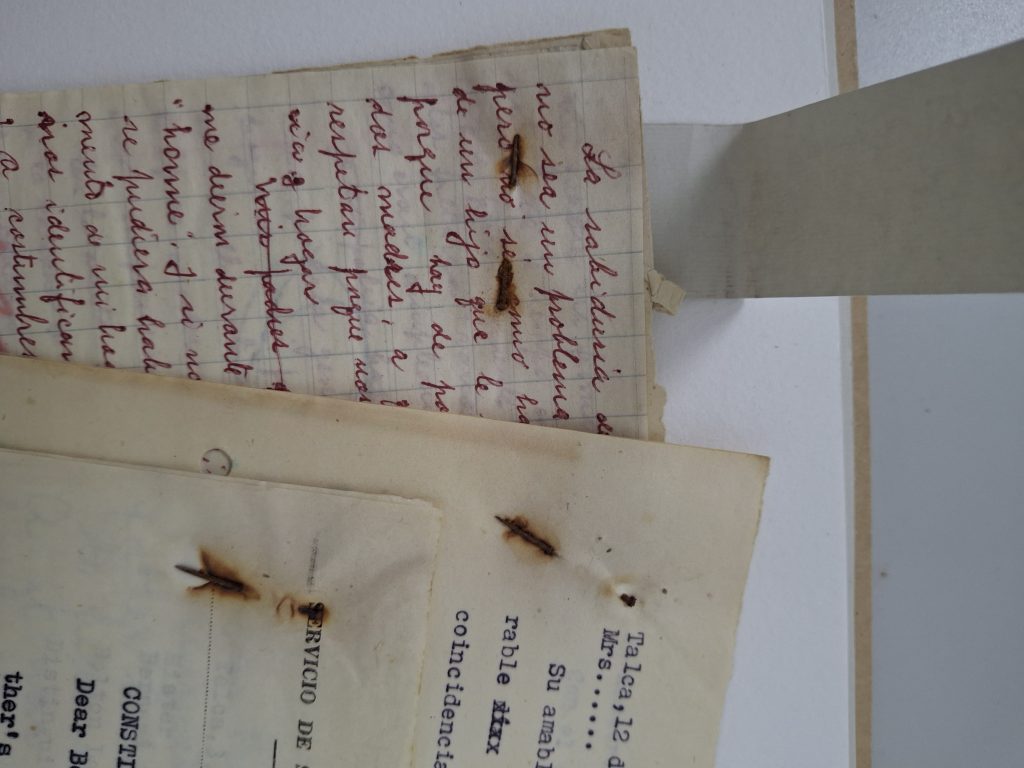 La sabiduría de
no sea un problema
pero no si como ha
de un hijo que le
porque hay de po
dos madres i a g
respetan porque nos
via y hogar
me dieron durante
"home", y si no
se pudiera hab
mento de mi he
mos identifican
a costumbres
Talca,12 d
Mrs.......
Su amabl
rable
coincidencia
SERVICIO DE S
CONSTI
Dear Be
ther's